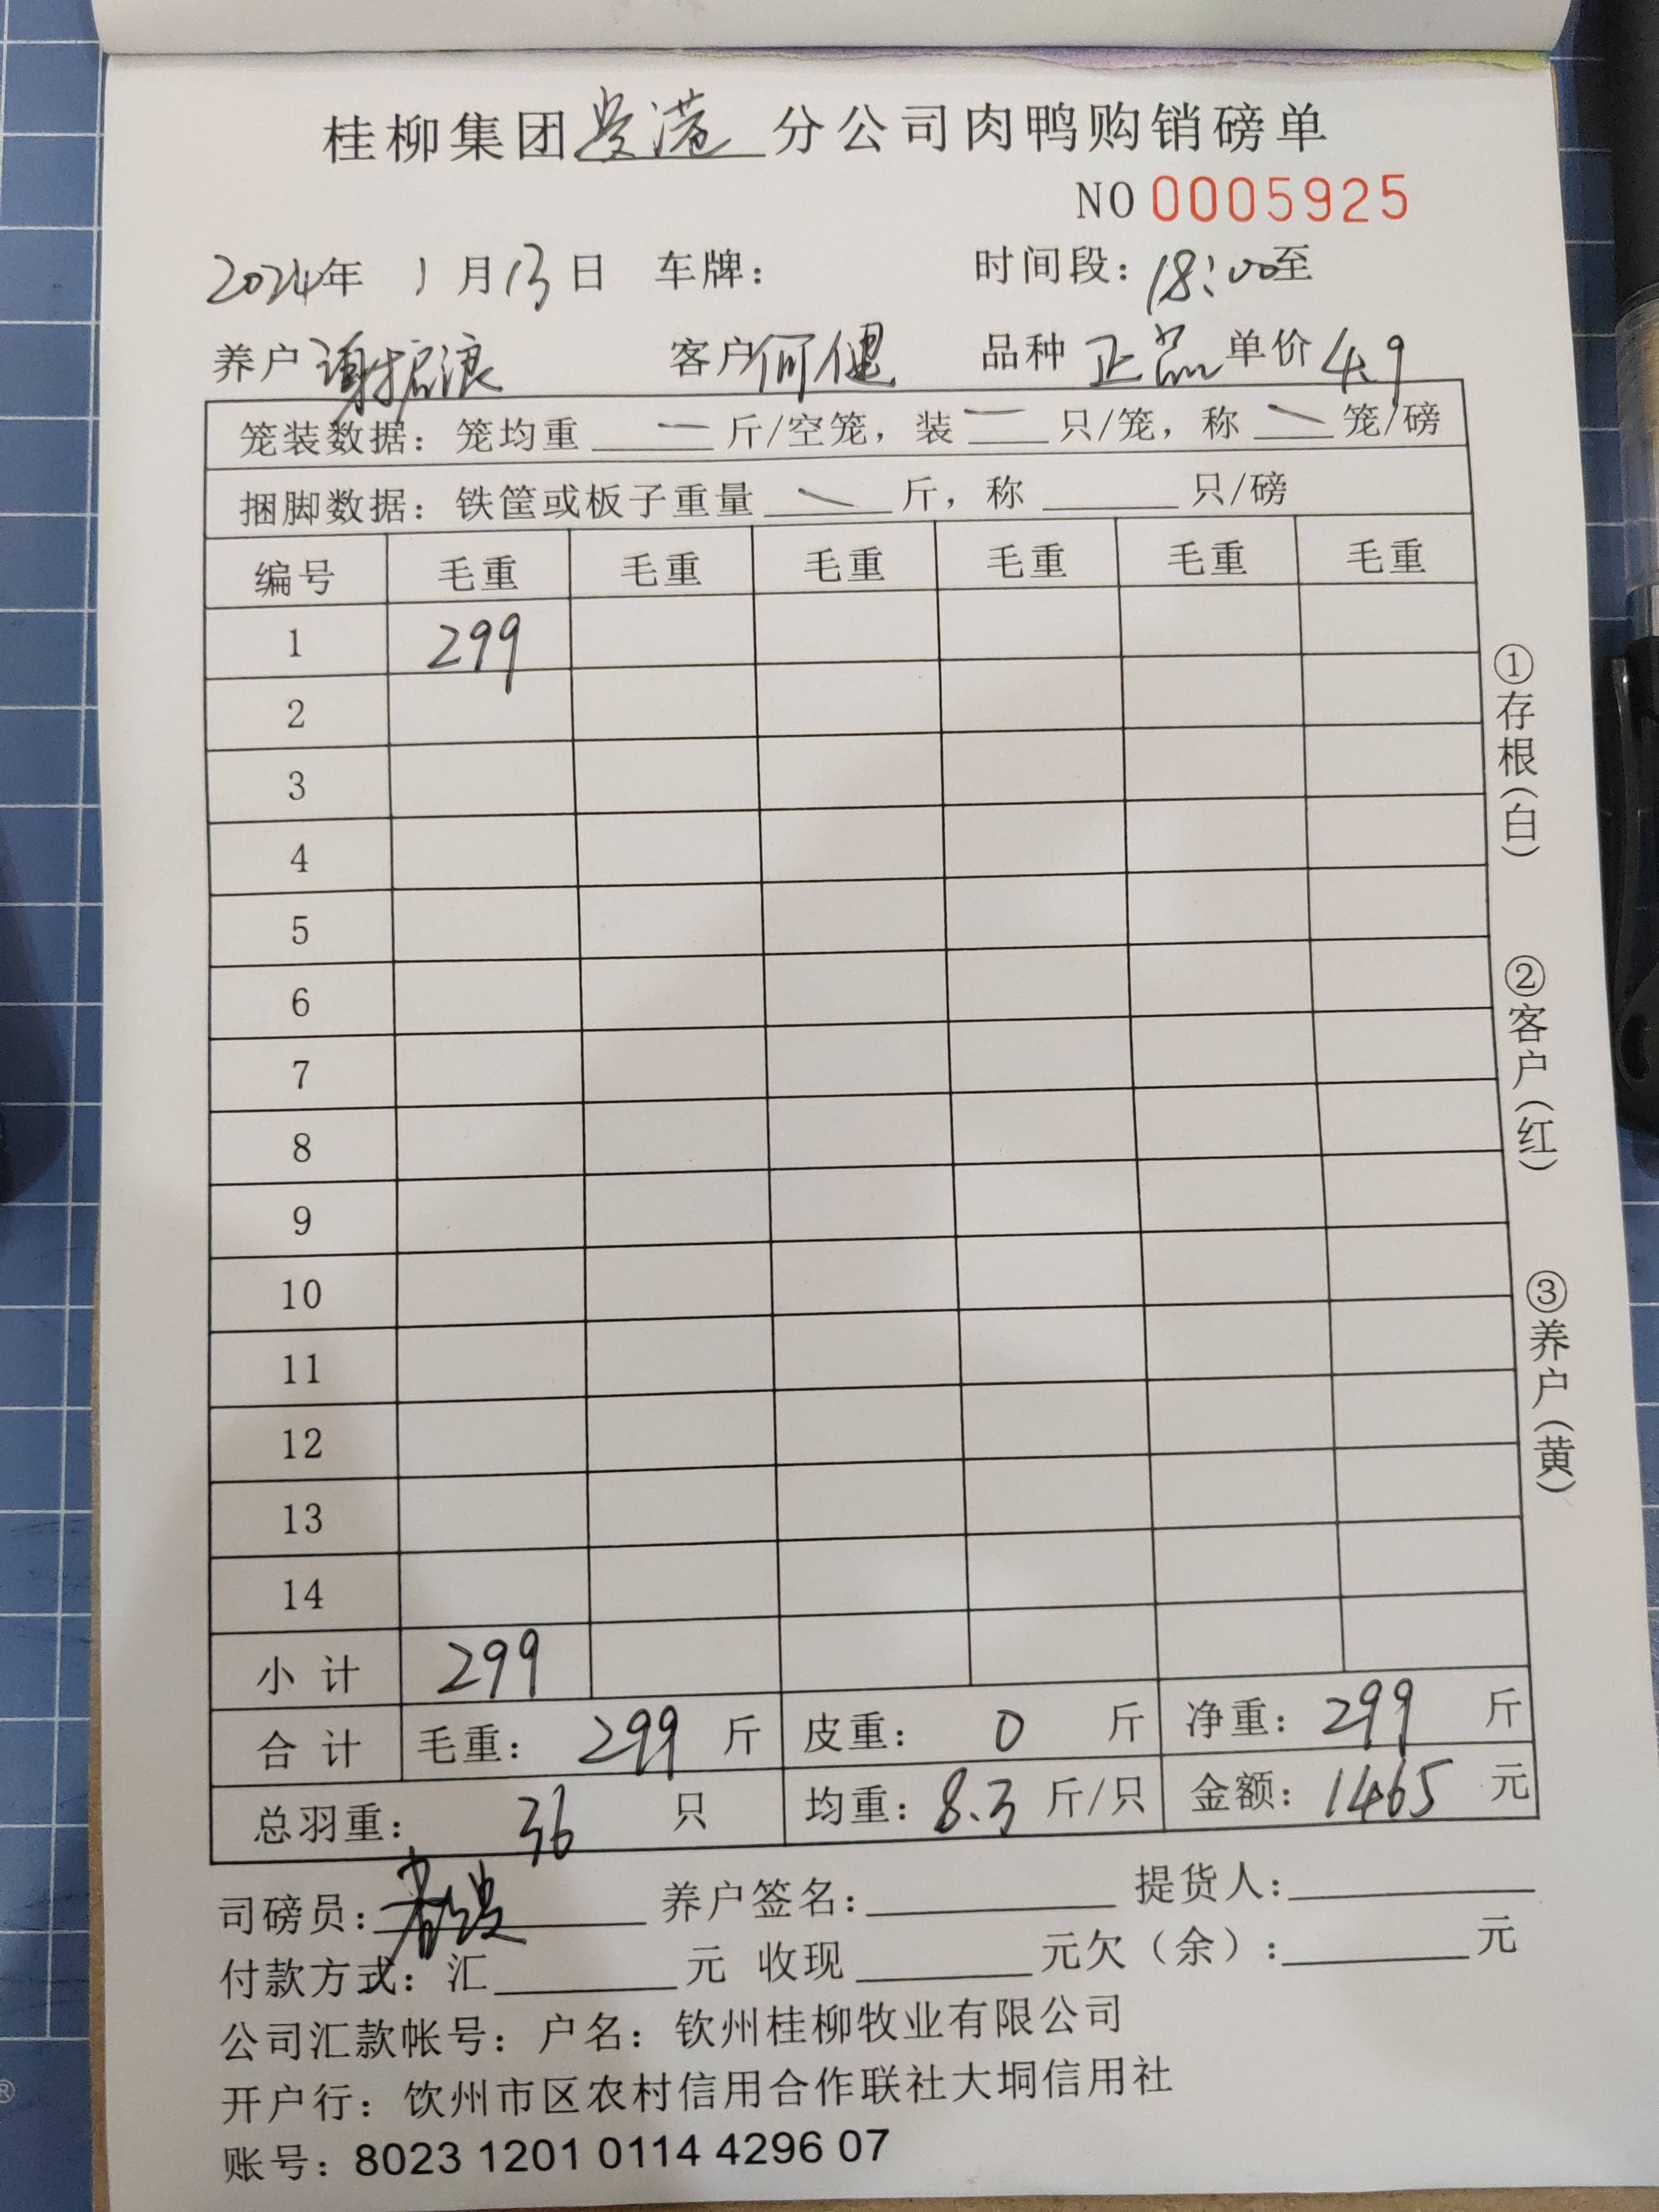 桂柳集团贵港分公司肉鸭购销磅单
NO 0005925
2024年 1月13日 车牌： 时间段：18:00至
养户 谢振浪 客户 何健 品种 正品 单价 4.9
笼装数据：笼均重 — 斤/空笼，装 — 只/笼，称 — 笼/磅
捆脚数据：铁筐或板子重量 — 斤，称 只/磅
编号 毛重 毛重 毛重 毛重 毛重 毛重
1 299
2
3
4
5
6
7
8
9
10
11
12
13
14
小计 299
合计 毛重：299 斤 皮重：0 斤 净重：299 斤
总羽重：36 只 均重：8.3 斤/只 金额：1465 元
司磅员： 养户签名： 提货人：
付款方式：汇 元 收现 元欠（余）： 元
公司汇款帐号：户名：钦州桂柳牧业有限公司
开户行：钦州市区农村信用合作联社大垌信用社
账号：8023 1201 0114 4296 07
①存根（白）
②客户（红）
③养户（黄）